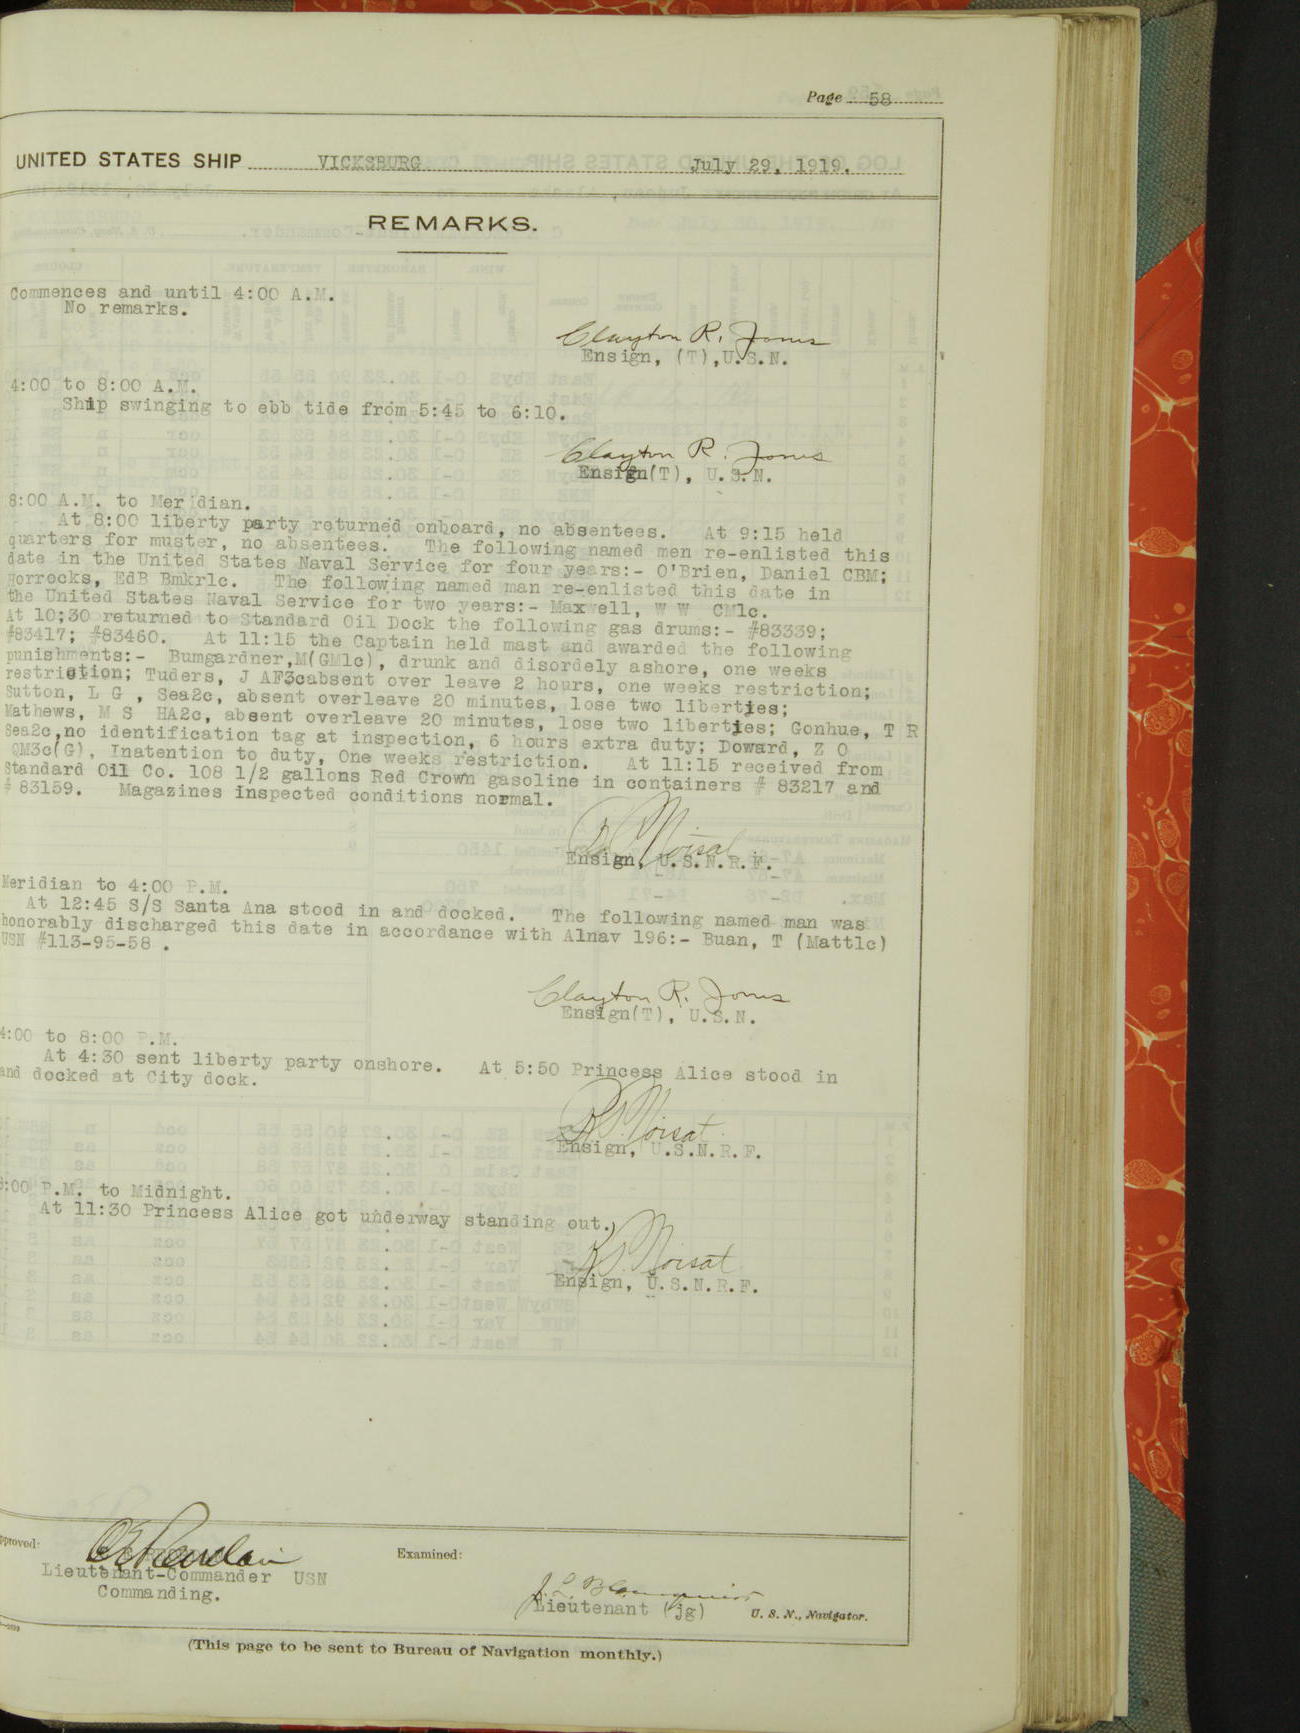 Page 58
UNITED STATES SHIP VICKSBURG July 29, 1919.
REMARKS.
Commences and until 4:00 A.M.
No remarks.
Clayton R. Jones
Ensign, (T),U.S.N.
4:00 to 8:00 A.M.
Ship swinging to ebb tide from 5:45 to 6:10.
Clayton R. Jones
Ensign(T), U.S.N.
8:00 A.M. to Meridian.
At 8:00 liberty party returned onboard, no absentees. At 9:15 held
quarters for muster, no absentees. The following named men re-enlisted this
date in the United States Naval Service for four years:- O'Brien, Daniel CBM;
Horrocks, EdB Bmkr1c. The following named man re-enlisted this date in
the United States Naval Service for two years:- Maxwell, W W CM1c.
At 10;30 returned to Standard Oil Dock the following gas drums:- #83339;
#83417; #83460. At 11:15 the Captain held mast and awarded the following
punishments:- Bumgardner,M(GM1c), drunk and disordely ashore, one weeks
restriction; Tuders, J AF3cabsent over leave 2 hours, one weeks restriction;
Sutton, L G , Sea2c, absent overleave 20 minutes, lose two liberties;
Mathews, M S HA2c, absent overleave 20 minutes, lose two liberties; Gonhue, T R
Sea2c,no identification tag at inspection, 6 hours extra duty; Doward, Z O
QM3c(G), Inatention to duty, One weeks restriction. At 11:15 received from
Standard Oil Co. 108 1/2 gallons Red Crown gasoline in containers # 83217 and
# 83159. Magazines inspected conditions normal.
Ensign, U.S.N.R.F.
Meridian to 4:00 P.M.
At 12:45 S/S Santa Ana stood in and docked. The following named man was
honorably discharged this date in accordance with Alnav 196:- Buan, T (Matt1c)
USN #113-95-58 .
Clayton R. Jones
Ensign(T), U.S.N.
4:00 to 8:00 P.M.
At 4:30 sent liberty party onshore. At 5:50 Princess Alice stood in
and docked at City dock.
Ensign, U.S.N.R.F.
8:00 P.M. to Midnight.
At 11:30 Princess Alice got underway standing out.
Ensign, U.S.N.R.F.
Approved:
Examined:
Lieutenant-Commander USN
Commanding.
Lieutenant (jg) U. S. N., Navigator.
(This page to be sent to Bureau of Navigation monthly.)